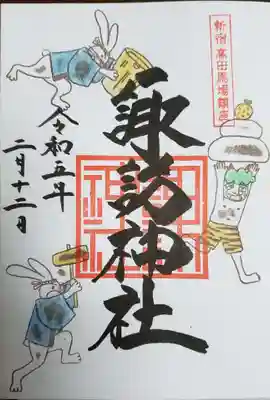 新宿高田馬場鎮座
諏訪神社
令和五年
二月十二日